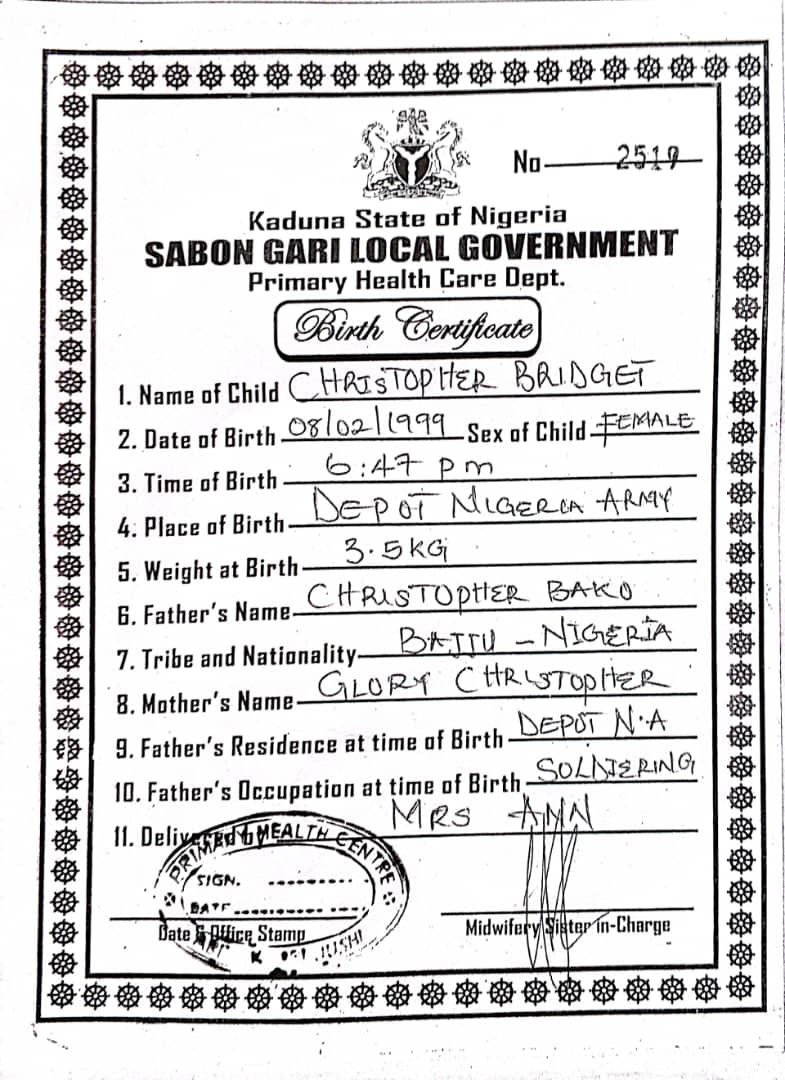 No 2519
Kaduna State of Nigeria
SABON GARI LOCAL GOVERNMENT
Primary Health Care Dept.
Birth Certificate
1. Name of Child CHRISTOPHER BRIDGET
2. Date of Birth 08/02/1999 Sex of Child FEMALE
3. Time of Birth 6:47 pm
4. Place of Birth DEPOT NIGERIA ARMY
5. Weight at Birth 3.5KG
6. Father's Name CHRISTOPHER BAKO
7. Tribe and Nationality BAJJU - NIGERIA
8. Mother's Name GLORY CHRISTOPHER
9. Father's Residence at time of Birth DEPOT N.A
10. Father's Occupation at time of Birth SOLDIERING
11. Delivered by MRS ANN
PRIMARY HEALTH CENTRE
SIGN.
DATE
Date & Office Stamp Midwifery Sister in-Charge